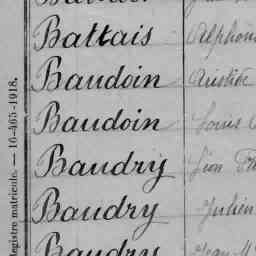 Battais Alphons
Baudoin Aristide
Baudoin Louis
Baudry Léon
Baudry Julien
Baudry Jean M
Registre matricule. — 10-465-1918.